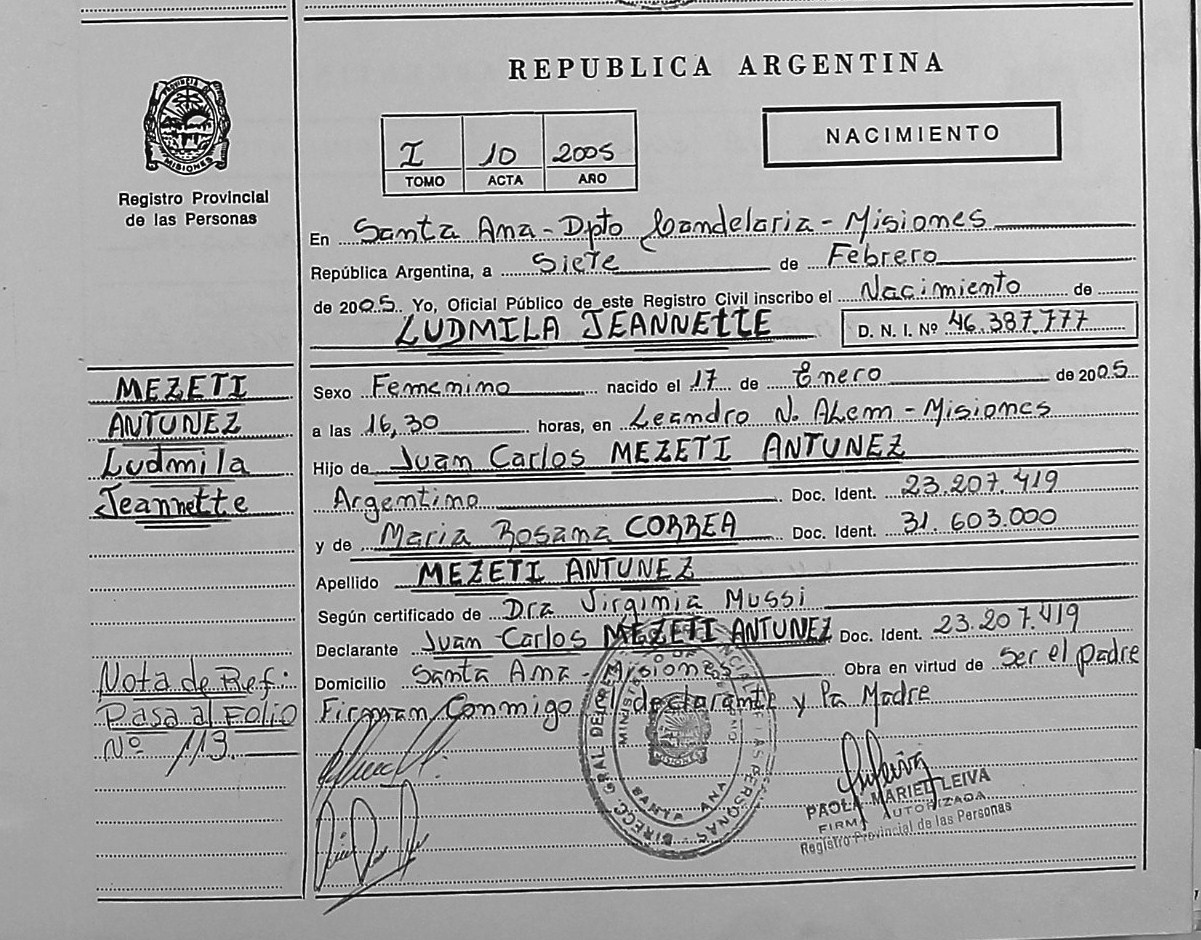 REPUBLICA ARGENTINA
PROVINCIA DE
MISIONES
Registro Provincial
de las Personas
I 10 2005
TOMO ACTA AÑO
NACIMIENTO
En Santa Ana - Dpto Candelaria - Misiones
República Argentina, a Siete de Febrero
de 2005. Yo, Oficial Público de este Registro Civil inscribo el Nacimiento de
LUDMILA JEANNETTE D. N. I. Nº 46.387.777
MEZETI
ANTUNEZ
Ludmila
Jeannette
Sexo Femenino nacido el 17 de Enero de 2005
a las 16,30 horas, en Leandro N. ALem - Misiones
Hijo de Juan Carlos MEZETI ANTUNEZ
Argentino Doc. Ident. 23.207.419
y de Maria Rosana CORREA Doc. Ident. 31.603.000
Apellido MEZETI ANTUNEZ
Según certificado de Dra Virginia Mussi
Declarante Juan Carlos MEZETI ANTUNEZ Doc. Ident. 23.207.419
Domicilio Santa Ana - Misiones Obra en virtud de Ser el padre
Firman Conmigo el declarante y la Madre
Nota de Ref:
Pasa al Folio
Nº 113.
SANTA ANA
MISIONES
PAOLA MARIEL LEIVA
FIRMA AUTORIZADA
Registro Provincial de las Personas